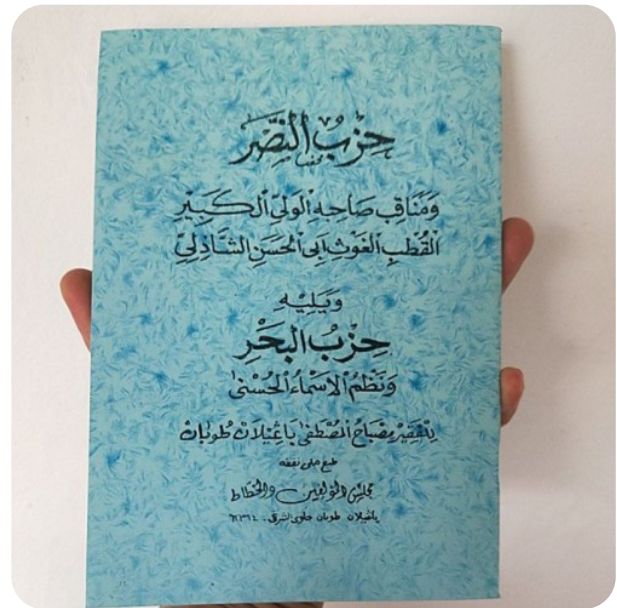 حِزْبُ النَّصْرِ
وَمَنَاقِبِ صَاحِبِهِ الْوَلِيِّ الْكَبِيْرِ
الْقُطْبِ الْغَوْثِ اَبِى الْحَسَنِ الشَّاذِلِيِّ
وَيَلِيْهِ
حِزْبُ الْبَحْرِ
وَنَظْمُ الْاَسْمَاءُ الْحُسْنٰى
لِلْفَقِيْرْ مِصْبَاحُ الْمُصْطَفٰى بَاغِيْلَانْ طُوبَانْ
طبع على نفقه
مجلس المؤلفين والخطاط
باغيلان طوبان جاوى الشرقى